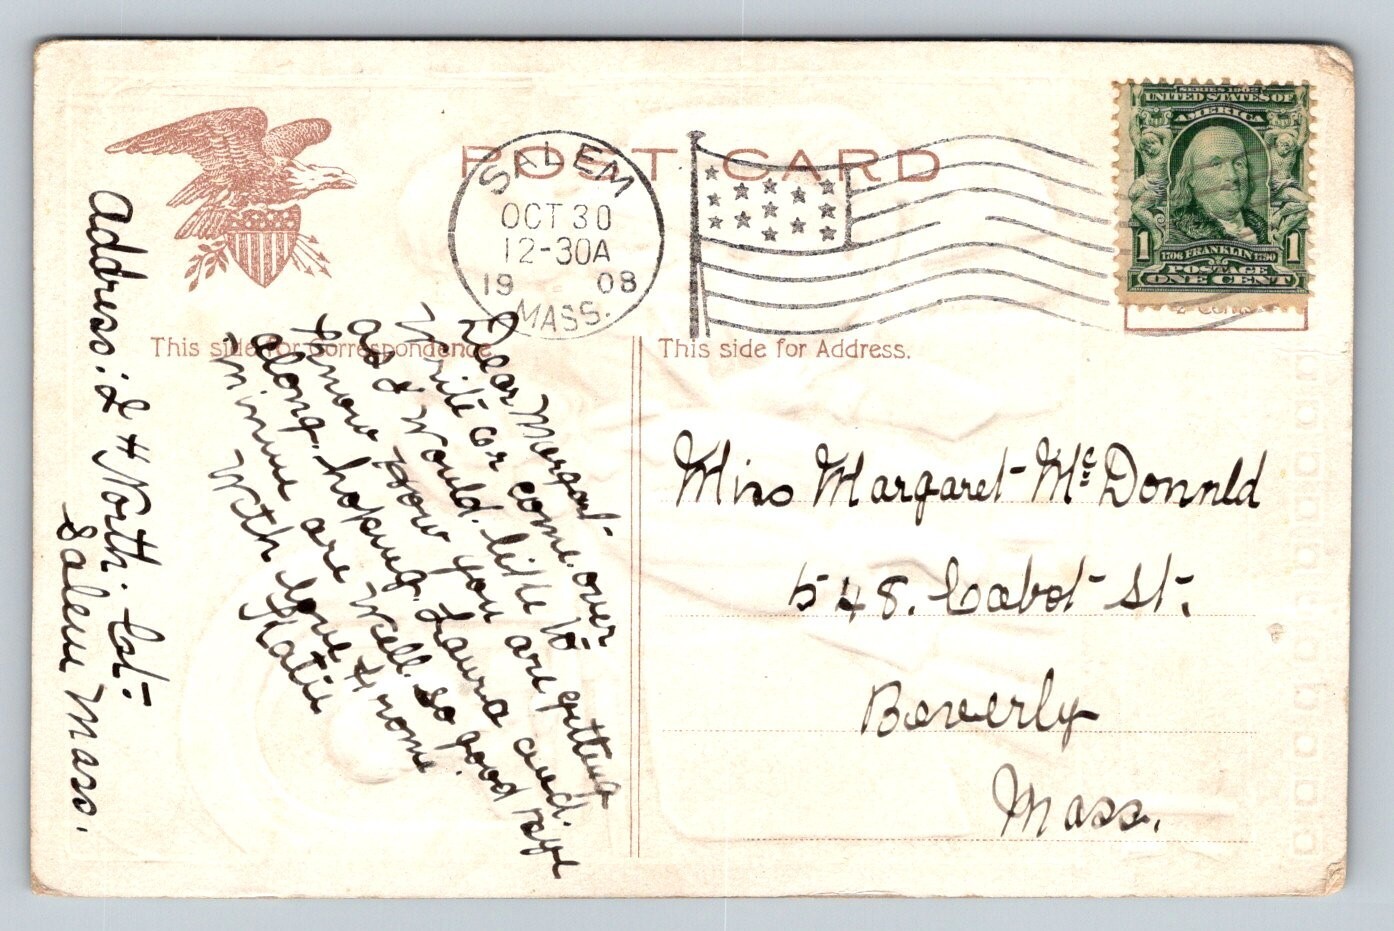 POST CARD
SALEM
OCT 30
12-30A
19 08
MASS.
SERIES 1902
UNITED STATES OF
AMERICA
1 1
1706 FRANKLIN 1790
POSTAGE
ONE CENT
This side for Correspondence
This side for Address.
Dear Margaret-
Write or come over
as I would like to
know how you are getting
along. hoping Laura and
minnie are well. so good
With love from
Katie
Address: 24 North. St.
Salem Mass.
Miss Margaret McDonnld
548. Cabot St.
Beverly
Mass.